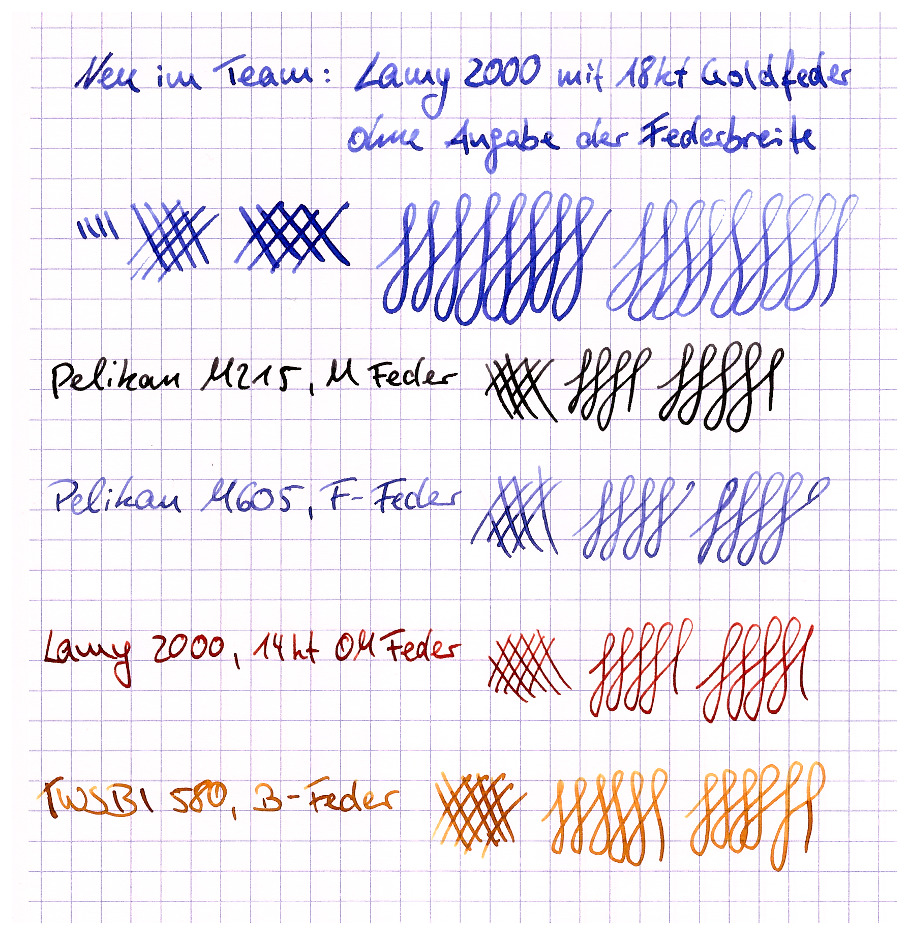 Neu im Team: Lamy 2000 mit 18kt Goldfeder
ohne Angabe der Federbreite
Pelikan M215, M Feder
Pelikan M605, F-Feder
Lamy 2000, 14kt OM Feder
TWSBI 580, B-Feder